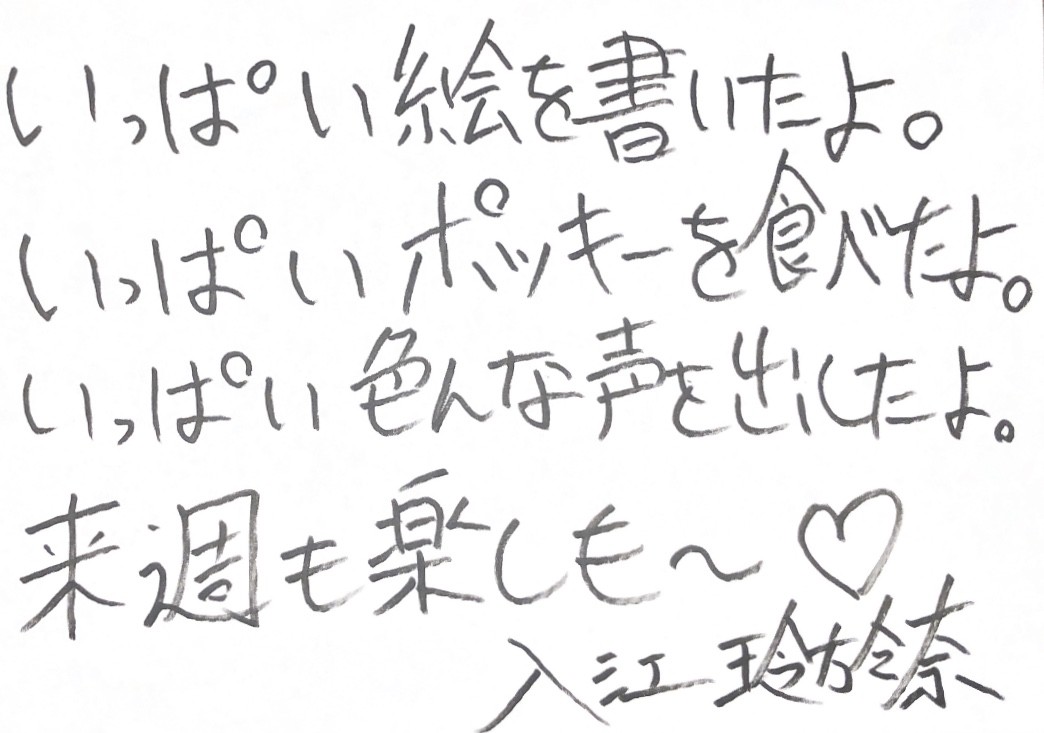 いっぱい絵を書いたよ。
いっぱいポッキーを食べたよ。
いっぱい色んな声を出したよ。
来週も楽しも〜♡
入江玲於奈